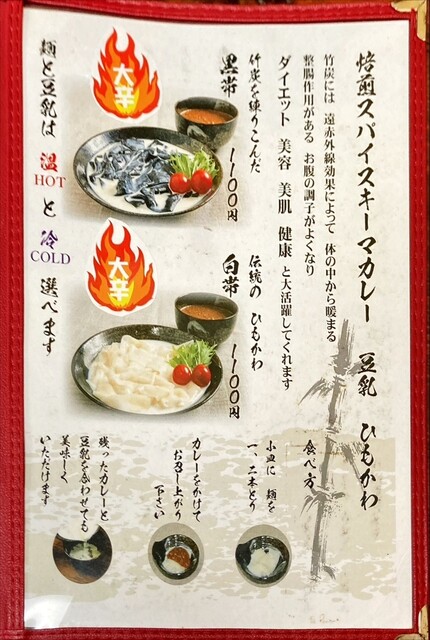 焙煎スパイスキーマカレー 豆乳 ひもかわ
竹炭には 遠赤外線効果によって 体の中から暖まる
整腸作用がある お腹の調子がよくなり
ダイエット 美容 美肌 健康 と大活躍してくれます
竹炭を練りこんだ
黒帯
1100円
大辛
伝統の ひもかわ
白帯
1100円
大辛
麺と豆乳は 温 HOT と 冷 COLD 選べます
食べ方
小皿に 麺を
一、二本とり
カレーをかけて
お召し上がり
下さい
残ったカレーと
豆乳を合わせても
美味しく
いただけます